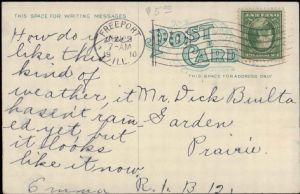 $5.00
THIS SPACE FOR WRITING MESSAGES
FREEPORT
7-AM
10
ILL.
POST
CARD
THIS SPACE FOR ADDRESS ONLY
How do y
like this
kind of
weather, it
hasent rain-
ed yet, but
it looks
like it now.
Emma
Mr. Dick Builta
Garden
Prairie
R.F.D. 12